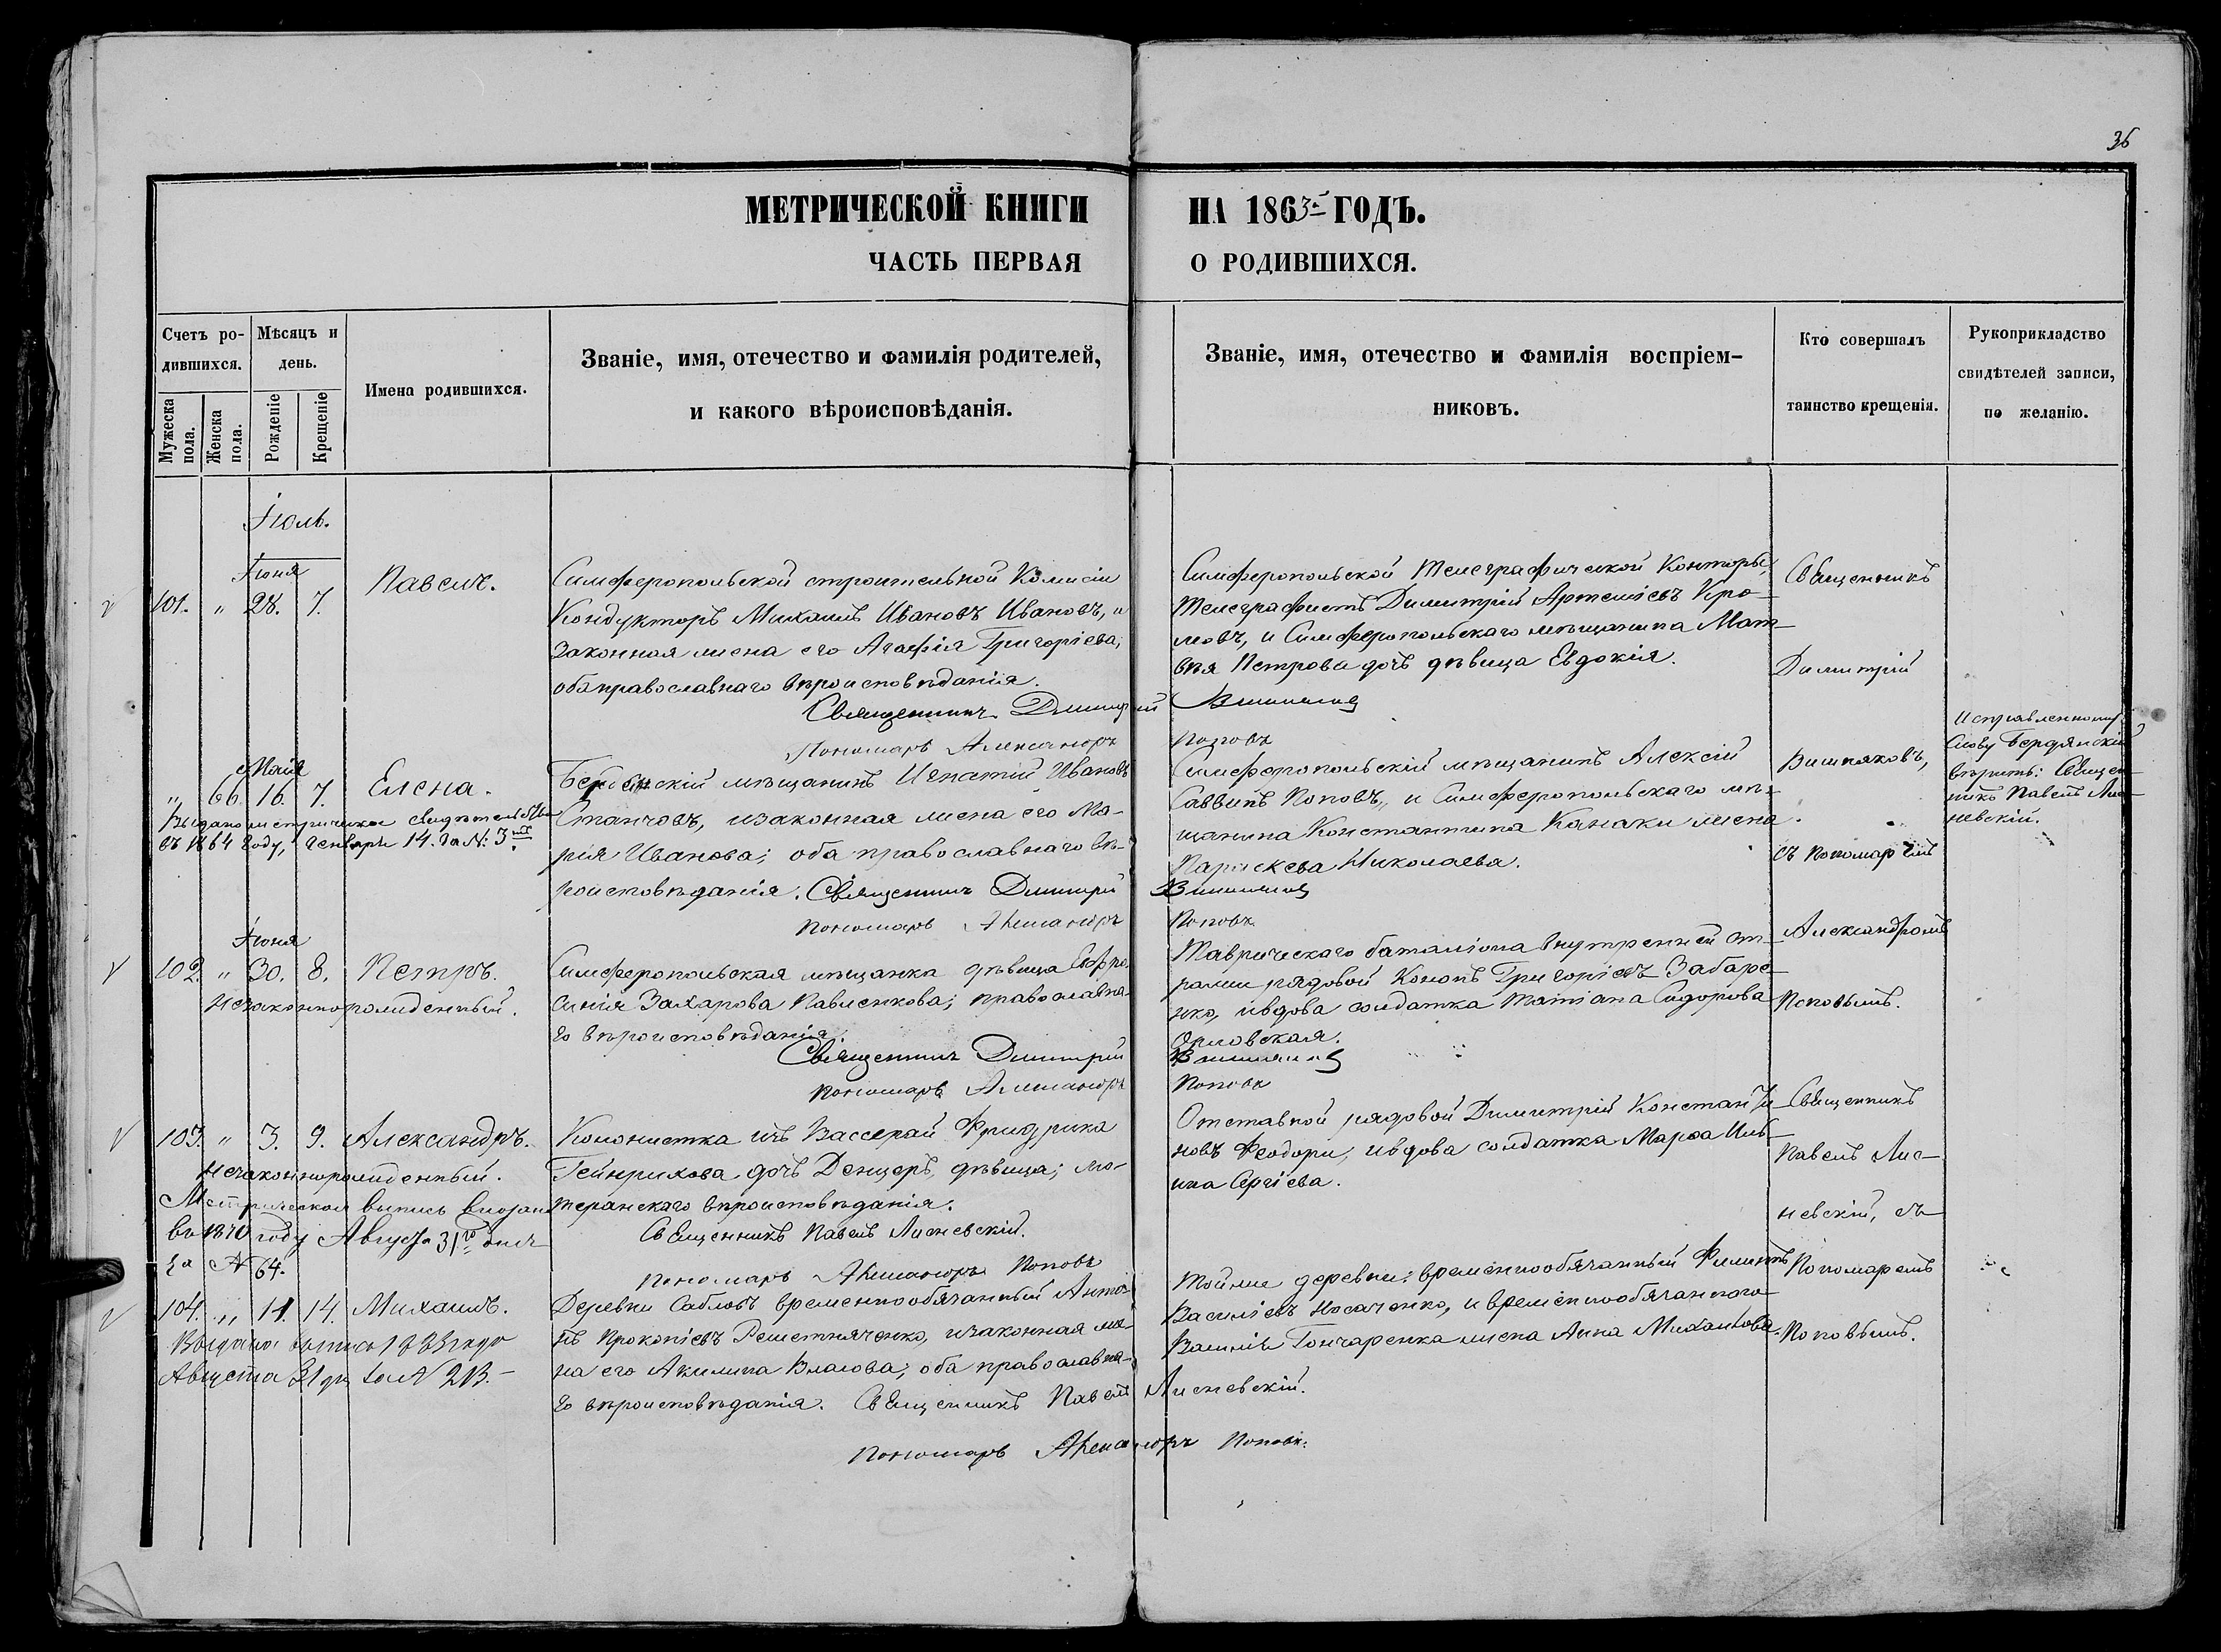 36
МЕТРИЧЕСКОЙ КНИГИ НА 1863й ГОДЪ.
ЧАСТЬ ПЕРВАЯ О РОДИВШИХСЯ.
Счетъ ро-
дившихся.
Мужеска
пола.
Женска
пола.
Мѣсяцъ и
день.
Рожденіе
Крещеніе
Имена родившихся.
Званіе, имя, отечество и фамилія родителей,
и какого вѣроисповѣданія.
Званіе, имя, отечество и фамилія воспріем-
никовъ.
Кто совершалъ
таинство крещенія.
Рукоприкладство
свидѣтелей записи,
по желанію.
Іюль.
Іюня
101. " 28. 7. Павелъ.
Симферопольской строительной Комисіи
Кондукторъ Михаилъ Ивановъ Ивановъ, и
законная жена его Агафія Григоріева,
оба православнаго вѣроисповѣданія.
Священникъ Димитрій Вишняковъ
Пономарь Александръ Поповъ
Симферопольской Телеграфической Конторы,
Телеграфистъ Димитрій Артеміевъ Кро-
мовъ, и Симферопольскаго мѣщанина Мат-
вѣя Петрова дочь дѣвица Евдокія.
Священникъ
Димитрій
Вишняковъ,
съ пономаремъ
Александромъ
Поповымъ.
Мая
" 66. 16. 7. Елена.
Выдано метрическое свидѣтельство
въ 1864 году, Генваря 14. за №: 3мъ
Бердянскій мѣщанинъ Игнатій Ивановъ
Станчовъ, и законная жена его Ма-
рія Иванова; оба православнаго вѣ-
роисповѣданія. Священникъ Димитрій Вишняковъ
Пономарь Александръ Поповъ
Симферопольскій мѣщанинъ Алексій
Саввинъ Поповъ, и Симферопольскаго мѣ-
щанина Константина Канаки жена
Параскева Николаева.
Исправленному
слову Бердянскій
вѣрить: Священ-
никъ Павелъ Лис-
невскій.
Іюня
102. " 30. 8. Петръ.
Незаконнорожденный.
Симферопольская мѣщанка дѣвица Евфро-
синія Захарова Павленкова; православна-
го вѣроисповѣданія.
Священникъ Димитрій Вишняковъ
Пономарь Александръ Поповъ
Таврическаго баталіона внутренней ст-
ражи рядовой Кононъ Григоріевъ Забаре-
нко, и вдова солдатка Татіана Сидорова
Орловская.
103. " 3. 9. Александръ.
Незаконнорожденный.
Метрическая выпись выдана
въ 1870 году Августа 31го дня
за № 64.
Колонистка изъ Вассерай Фридрика
Гейнрихова дочь Денцеръ, дѣвица; лю-
теранскаго вѣроисповѣданія.
Священникъ Павелъ Лисневскій.
Пономарь Александръ Поповъ
Отставной рядовой Димитрій Константи-
новъ Ѳеодори, и вдова солдатка Марѳа Иль-
ина Сергіева.
Священникъ
Павелъ Лис-
невскій, съ
Пономаремъ
Поповымъ.
104. " 11. 14. Михаилъ.
Выдана выпись 1883 года
Августа 31 дня за № 213.-
Деревни Сабловъ временнообязанный Анто-
нъ Прокопіевъ Решетняченко, и законная же-
на его Акилина Власова; оба православна-
го вѣроисповѣданія. Священникъ Павелъ Лисневскій.
Пономарь Александръ Поповъ.
Тойже деревни: временнообязанный Филиппъ
Василіевъ Носаченко, и временнообязаннаго
Василія Гончаренка жена Анна Михайлова.